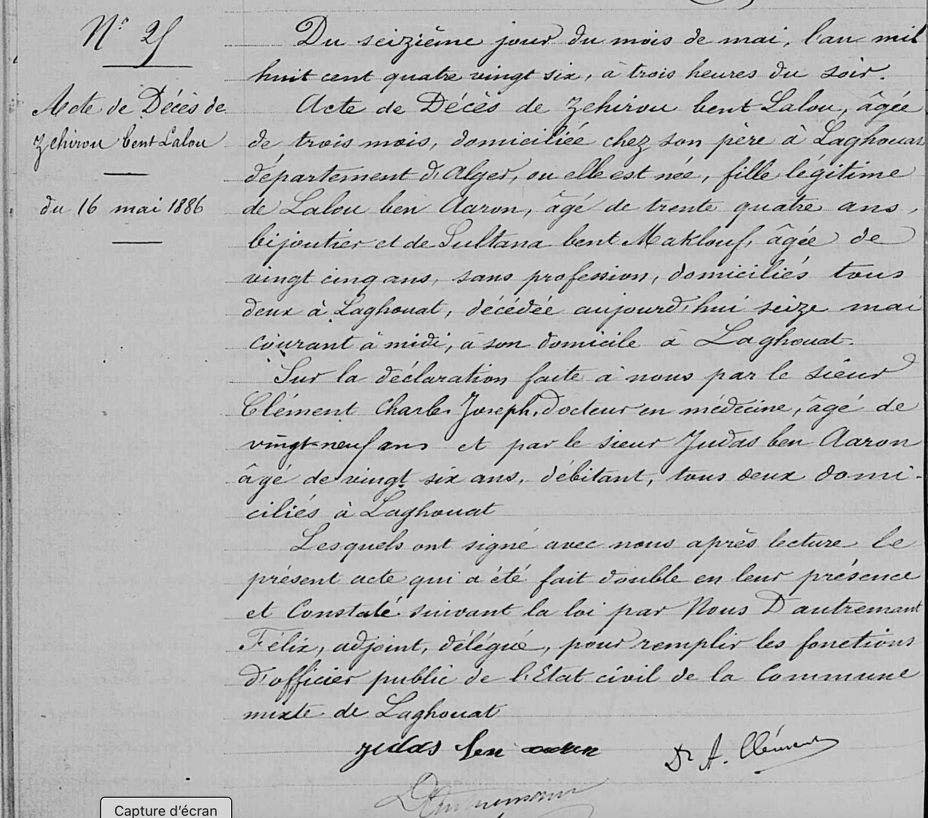 N° 25
Acte de Décès de
Zehirou bent Lalou
du 16 mai 1886
Du seizième jour du mois de mai, l'an mil
huit cent quatre vingt six, à trois heures du soir.
Acte de Décès de Zehirou bent Lalou, âgée
de trois mois, domiciliée chez son père à Laghouat
département d'Alger, ou elle est née, fille légitime
de Lalou ben Aaron, âgé de trente quatre ans,
bijoutier et de Sultana bent Maklouf, âgée de
vingt cinq ans, sans profession, domiciliés tous
deux à Laghouat, décédée aujourd'hui seize mai
courant à midi, à son domicile à Laghouat.
Sur la déclaration faite à nous par le sieur
Clément Charles Joseph, Docteur en médecine, âgé de
vingt-neuf ans et par le sieur Judas ben Aaron
âgé de vingt six ans, débitant, tous deux domi-
ciliés à Laghouat
Lesquels ont signé avec nous après lecture le
présent acte qui a été fait double en leur présence
et Constaté suivant la loi par Nous Dautremant
Félix, adjoint, délégué, pour remplir les fonctions
d'officier public de l'Etat civil de la Commune
mixte de Laghouat
judas ben
Dr A. Clément
Capture d'écran